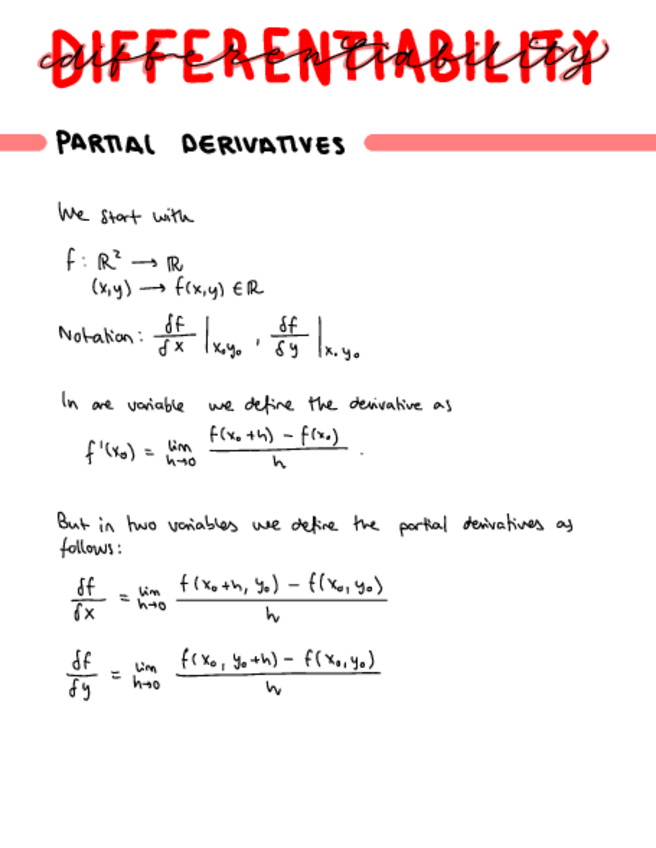 DIFFERENTIABILITY
differentiability
PARTIAL DERIVATIVES
We start with
f: ℝ² → ℝ
(x,y) → f(x,y) ∈ ℝ
Notation: δf/δx |x₀y₀ , δf/δy |x₀ y₀
In one variable we define the derivative as
f'(x₀) = lim h→0 (f(x₀+h) - f(x₀))/h .
But in two variables we define the partial derivatives as
follows:
δf/δx = lim h→0 (f(x₀+h, y₀) - f(x₀, y₀))/h
δf/δy = lim h→0 (f(x₀, y₀+h) - f(x₀, y₀))/h